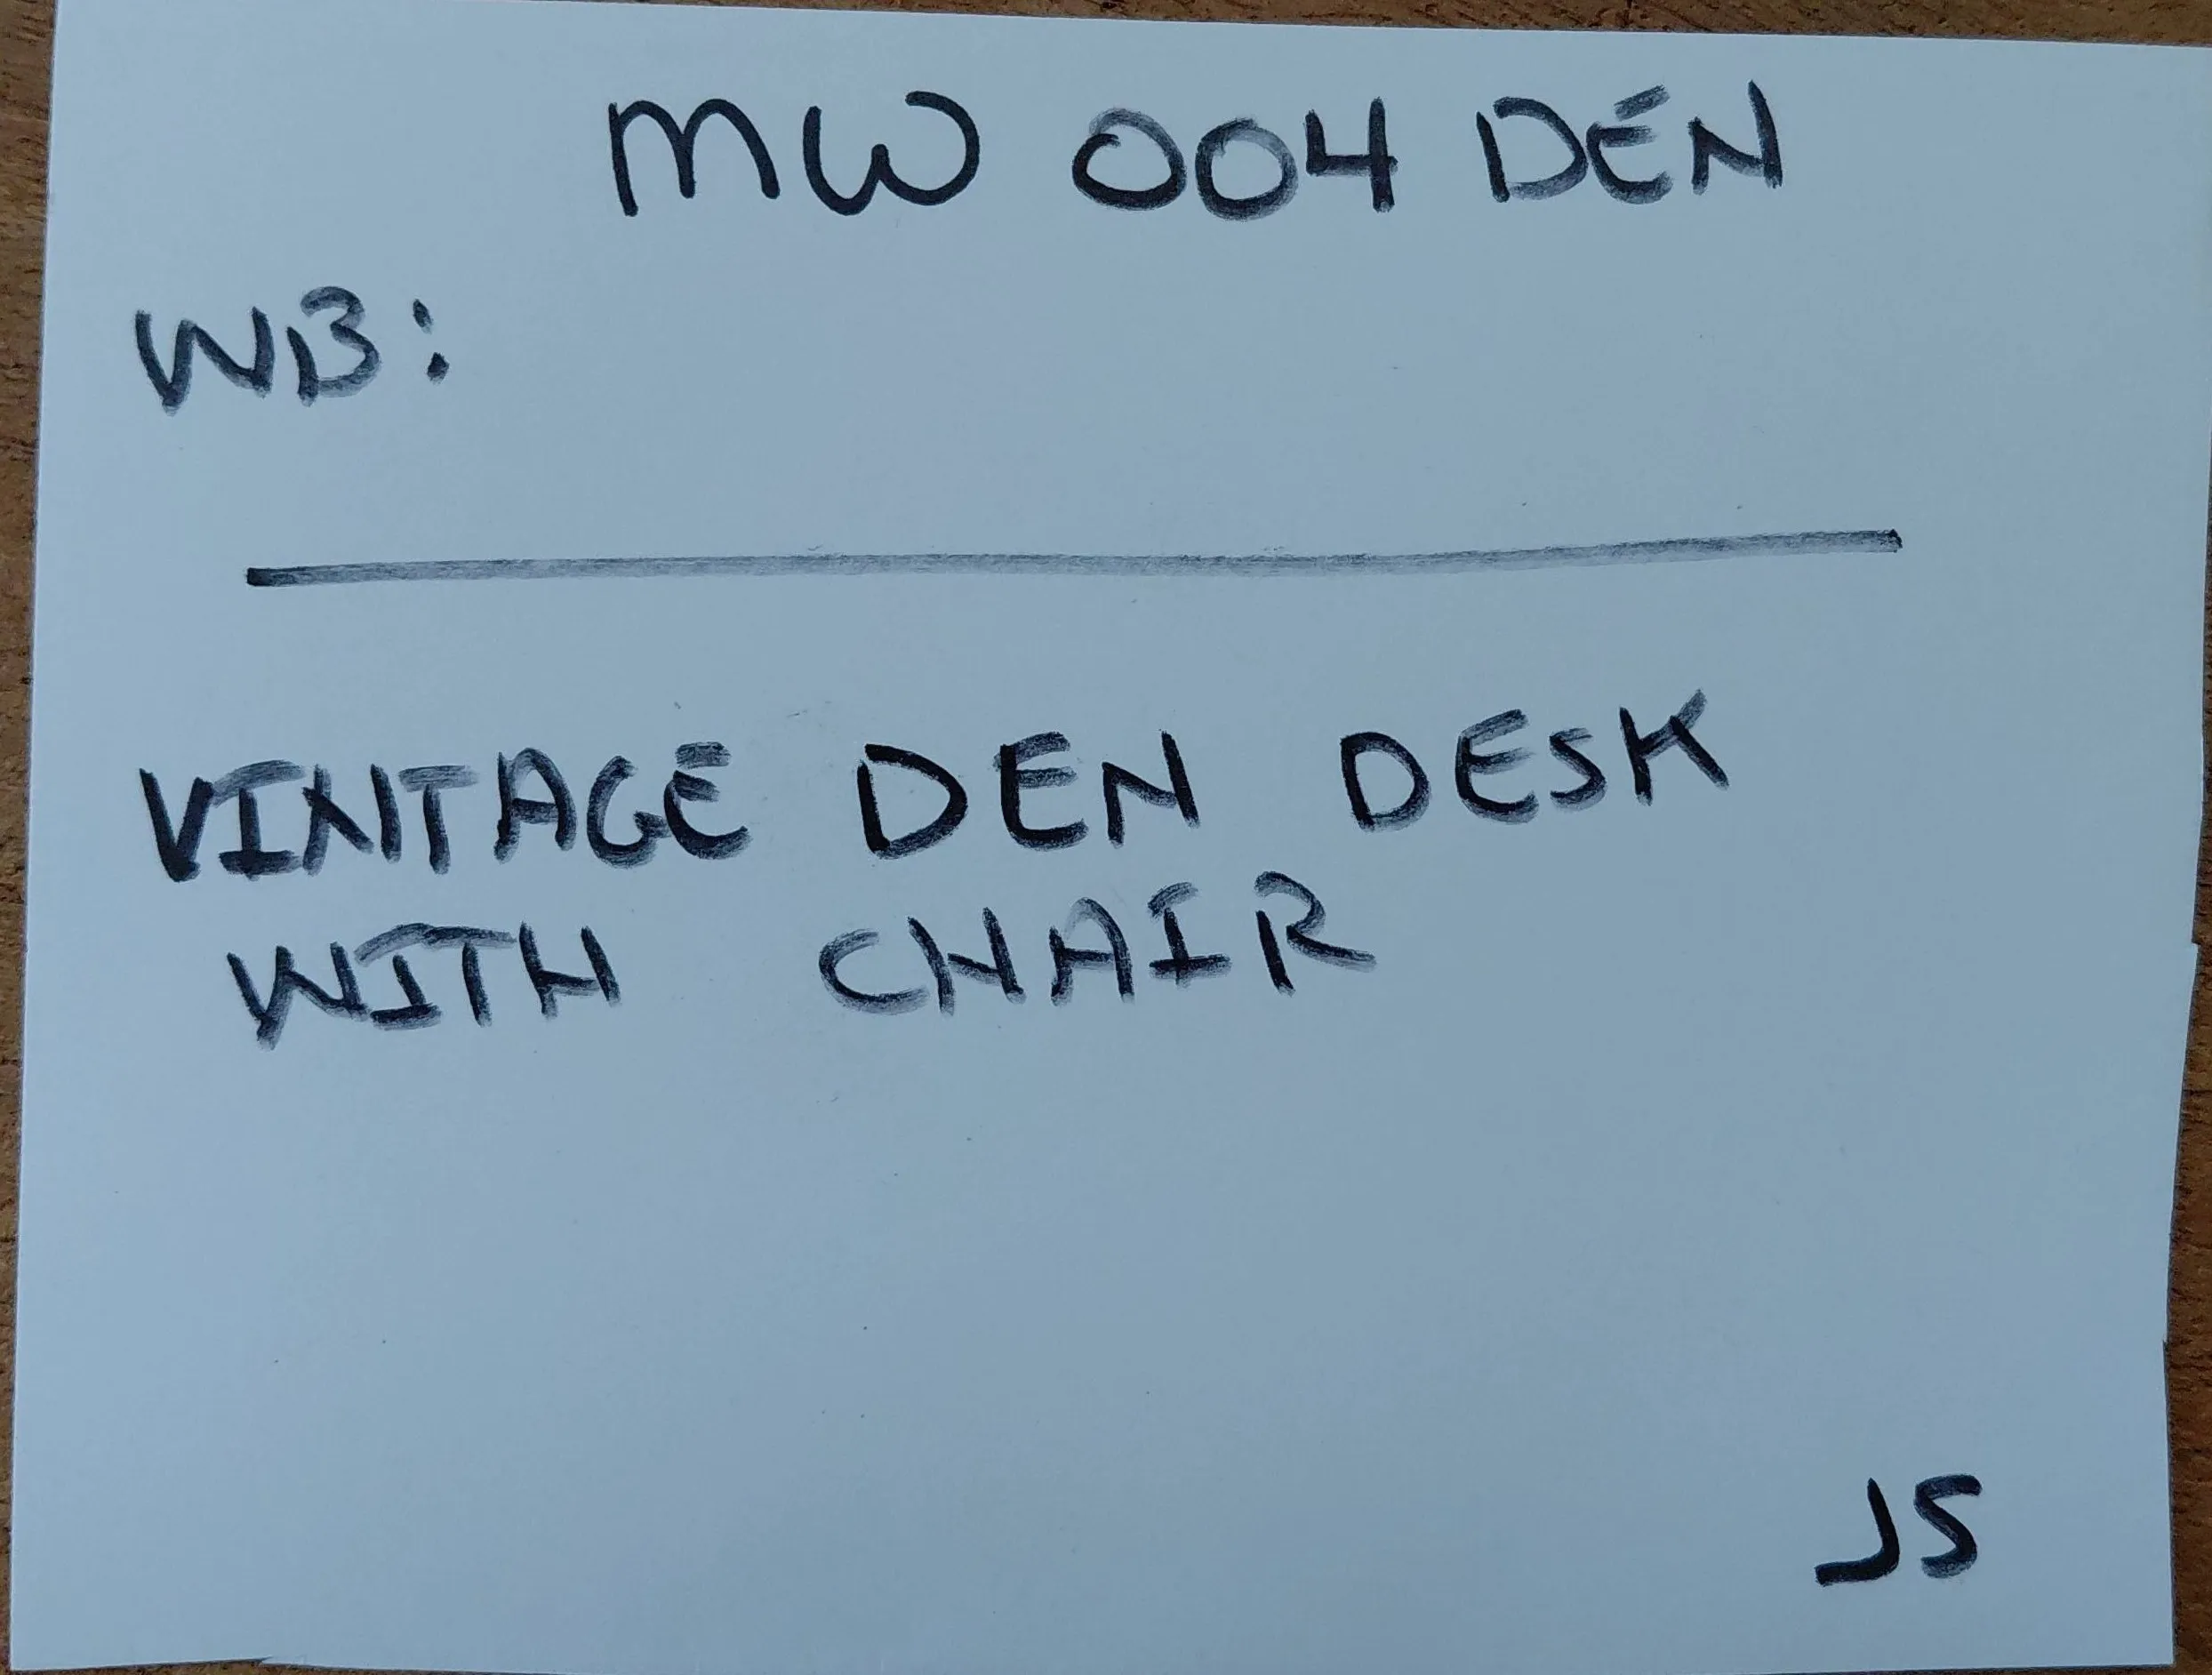 MW 004 DEN
WB:
VINTAGE DEN DESK
WITH CHAIR
JS